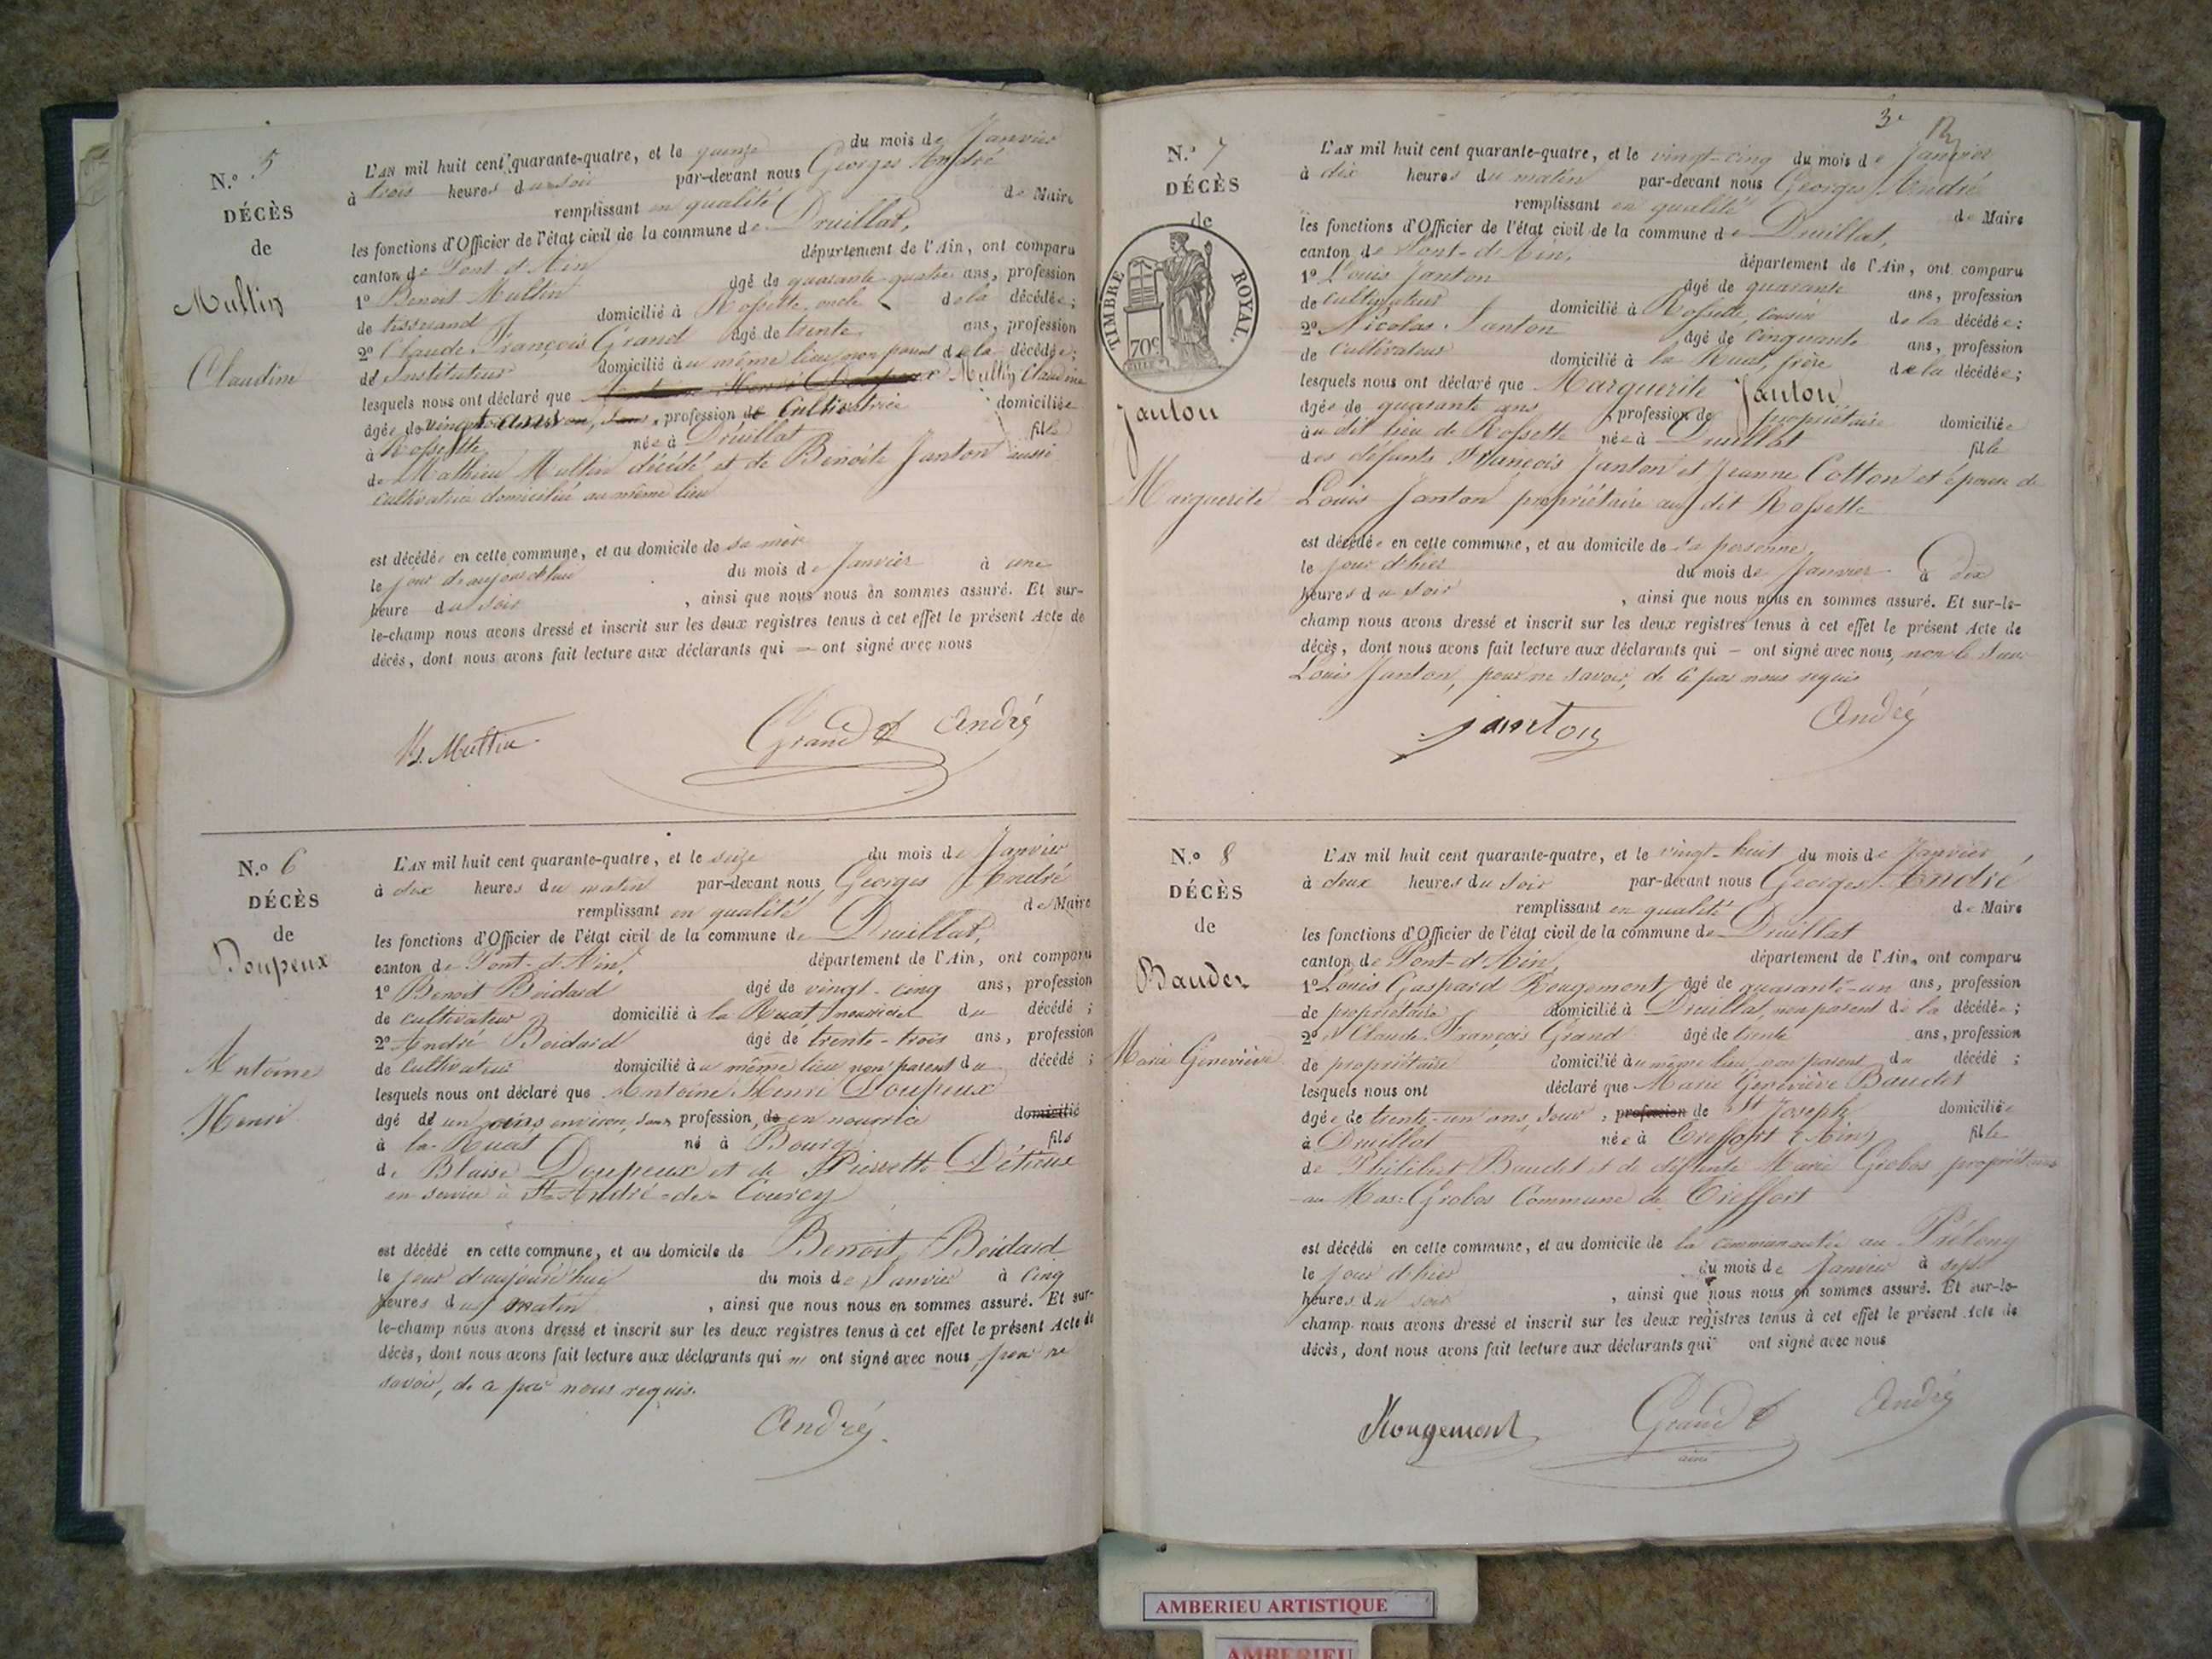 N.º 5
DÉCÈS
de
Multin
Claudine
L'AN mil huit cent quarante-quatre, et le quinze du mois de Janvier
à trois heures du soir par-devant nous Georges André
remplissant en qualité de Maire
les fonctions d'Officier de l'état civil de la commune de Druillat,
canton de Pont d'Ain département de l'Ain, ont comparu
1º Benoit Multin âgé de quarante-quatre ans, profession
de tisserand domicilié à Rossette oncle de la décédée;
2º Claude François Grand âgé de trente ans, profession
de Instituteur domicilié au même lieu non parent de la décédée;
lesquels nous ont déclaré que Antoine Henri Doupeux Multin Claudine
âgée de vingt ans, profession de Cultivatrice domiciliée
à Rossette née à Druillat fille
de Mathieu Multin décédé et de Benoite Janton aussi
cultivatrice domiciliée au même lieu
est décédée en cette commune, et au domicile de sa mère
le jour d'aujourd'hui du mois de Janvier à une
heure du soir, ainsi que nous nous en sommes assuré. Et sur-
le-champ nous avons dressé et inscrit sur les deux registres tenus à cet effet le présent Acte de
décès, dont nous avons fait lecture aux déclarants qui — ont signé avec nous
B. Multin Grand André
N.º 6
DÉCÈS
de
Doupeux
Antoine
Henri
L'AN mil huit cent quarante-quatre, et le seize du mois de Janvier
à dix heures du matin par-devant nous Georges André
remplissant en qualité de Maire
les fonctions d'Officier de l'état civil de la commune de Druillat,
canton de Pont-d'Ain, département de l'Ain, ont comparu
1º Benoit Boidard âgé de vingt-cinq ans, profession
de cultivateur domicilié à la Ruat nourricier du décédé;
2º André Boidard âgé de trente-trois ans, profession
de Cultivateur domicilié au même lieu non parent du décédé;
lesquels nous ont déclaré que Antoine Henri Doupeux
âgé de un mois environ, sans profession, de en nourrice domicilié
à la Ruat né à Bourg fils
de Blaise Doupeux et de Pierrette
en service à St André-de-Courcy
est décédé en cette commune, et au domicile de Benoit Boidard
le jour d'aujourd'hui du mois de Janvier à cinq
heures du matin, ainsi que nous nous en sommes assuré. Et sur-
le-champ nous avons dressé et inscrit sur les deux registres tenus à cet effet le présent Acte de
décès, dont nous avons fait lecture aux déclarants qui n' ont signé avec nous, pour ne
savoir, de ce par nous requis.
André
3e
N.º 7
DÉCÈS
de
TIMBRE ROYAL.
70c
Janton
Marguerite
L'AN mil huit cent quarante-quatre, et le vingt-cinq du mois de Janvier
à dix heures du matin par-devant nous Georges André
remplissant en qualité de Maire
les fonctions d'Officier de l'état civil de la commune de Druillat,
canton de Pont-d'Ain, département de l'Ain, ont comparu
1º Louis Janton âgé de quarante ans, profession
de cultivateur domicilié à Rossette, cousin de la décédée;
2º Nicolas Janton âgé de cinquante ans, profession
de Cultivateur domicilié à la Ruat, frère de la décédée;
lesquels nous ont déclaré que Marguerite Janton
âgée de quarante ans profession de propriétaire domiciliée
au dit lieu de Rossette née à Druillat fille
des défunts François Janton et Jeanne Cotton et épouse de
Louis Janton propriétaire au dit Rossette
est décédée en cette commune, et au domicile de sa personne
le jour d'hier du mois de Janvier à dix
heures du soir, ainsi que nous nous en sommes assuré. Et sur-le-
champ nous avons dressé et inscrit sur les deux registres tenus à cet effet le présent Acte de
décès, dont nous avons fait lecture aux déclarants qui — ont signé avec nous, non le sieur
Louis Janton, pour ne savoir, de ce par nous requis
Janton André
N.º 8
DÉCÈS
de
Baudet
Marie Geneviève
L'AN mil huit cent quarante-quatre, et le vingt-huit du mois de Janvier
à deux heures du soir par-devant nous Georges André
remplissant en qualité de Maire
les fonctions d'Officier de l'état civil de la commune de Druillat
canton de Pont-d'Ain, département de l'Ain, ont comparu
1º Louis Gaspard Rougemont âgé de quarante-un ans, profession
de propriétaire domicilié à Druillat, non parent de la décédée;
2º Claude François Grand âgé de trente ans, profession
de propriétaire domicilié au même lieu, non parent de décédé;
lesquels nous ont déclaré que Marie Geneviève Baudet
âgée de trente-un ans, Soeur, profession de St Joseph domiciliée
à Druillat née à Treffort (Ain) fille
de Philibert Baudet et de défunte Marie Grobos propriétaires
au Mas-Grobos Commune de Treffort
est décédé en cette commune, et au domicile de la communauté au Prélong
le jour d'hier du mois de Janvier à sept
heures du soir, ainsi que nous nous en sommes assuré. Et sur-le-
champ nous avons dressé et inscrit sur les deux registres tenus à cet effet le présent Acte de
décès, dont nous avons fait lecture aux déclarants qui ont signé avec nous
Rougemont Grand André
ainé
AMBERIEU ARTISTIQUE
AMBERIEU